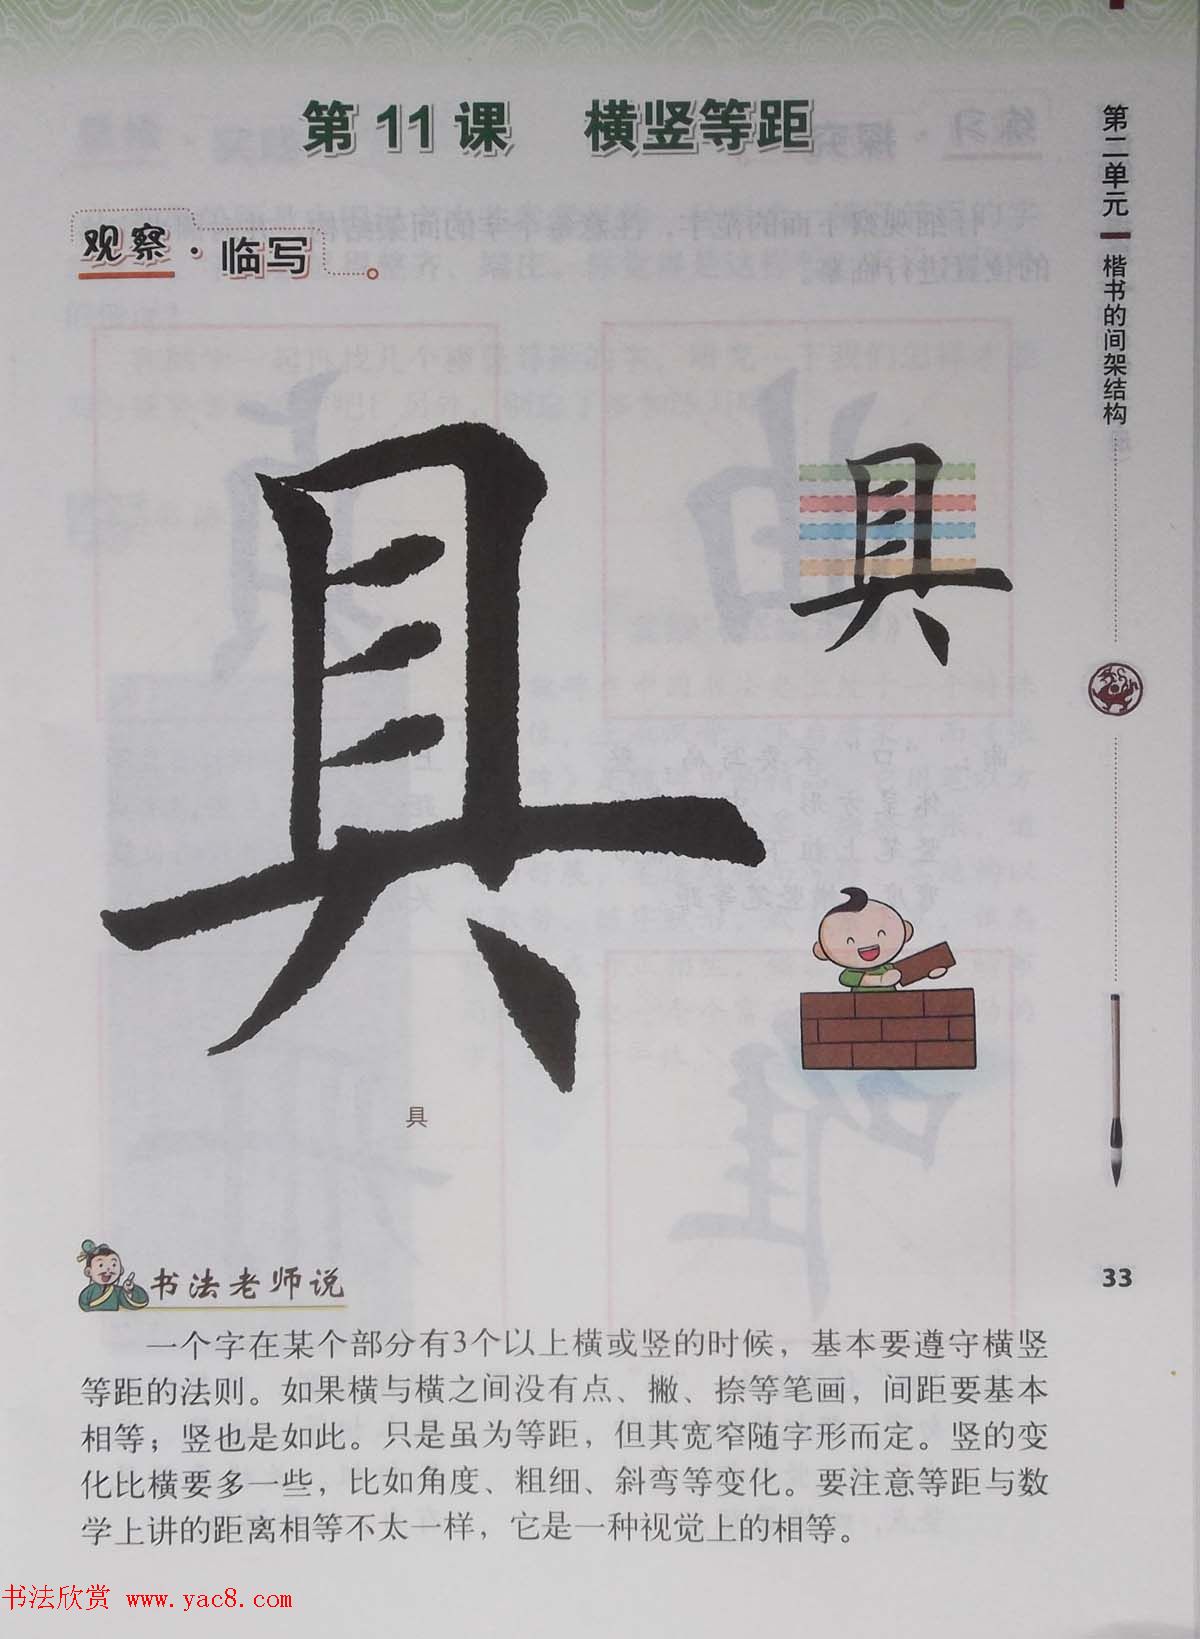 第11课 横竖等距
观察·临写
第二单元 楷书的间架结构
具
具
具
书法老师说
33
一个字在某个部分有3个以上横或竖的时候，基本要遵守横竖
等距的法则。如果横与横之间没有点、撇、捺等笔画，间距要基本
相等；竖也是如此。只是虽为等距，但其宽窄随字形而定。竖的变
化比横要多一些，比如角度、粗细、斜弯等变化。要注意等距与数
学上讲的距离相等不太一样，它是一种视觉上的相等。
书法欣赏 www.yac8.com